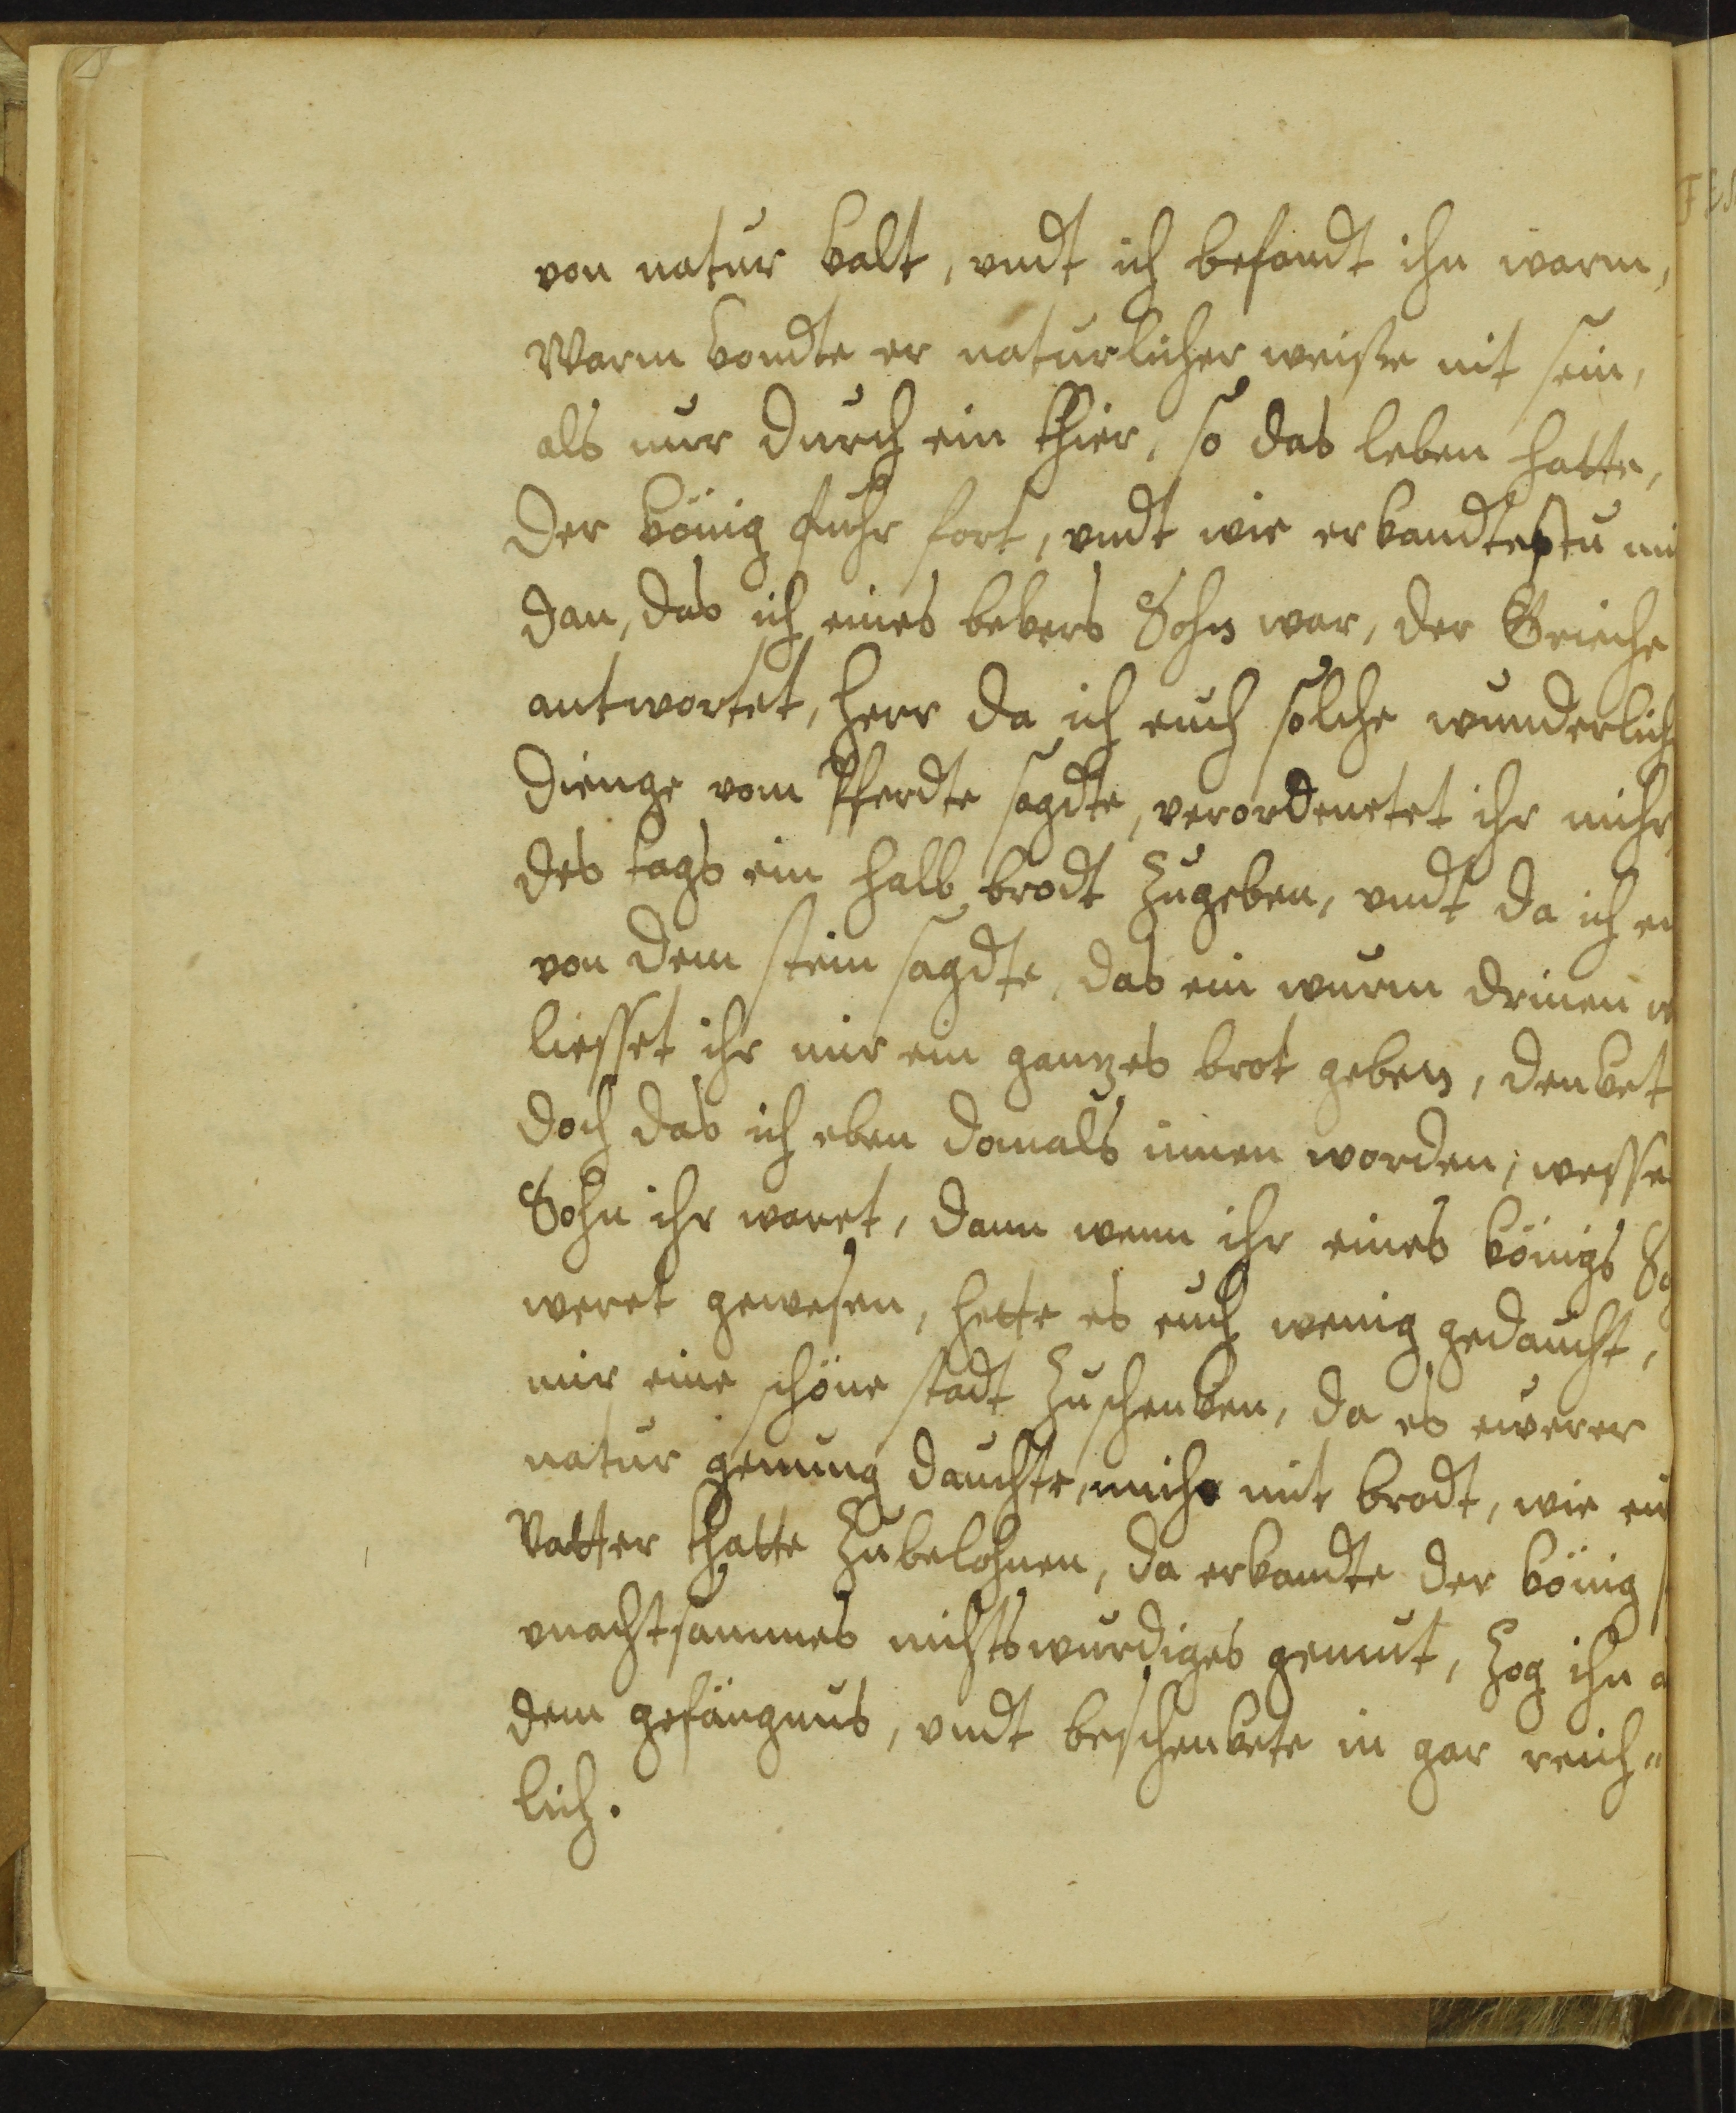 von natur kalt, vndt ich befandt ihn warm,
Warm kondte er naturlicher weiße nit sein,
als nur durch ein thier, so das leben hatte,
Der könig fuhr fort, vndt wie erkandtestu
dan, das ich eines bekers Sohn war, der Grieche
antwortet, herr da ich euch solche wunderlich
Dienge vom Pferdte sagdte, verordenetet ihr mihr,
des tags ein halb brodt zugeben, vndt da ich
von dem stein sagdte, das ein wurm drinen
liesset ihr mir ein gantzes brot geben, denket
doch das ich eben damals innen worden, wesse
Sohn ihr waret, dann wenn ihr eines königs
weret gewesen, hette es euch wenig gedaucht,
mir eine schöne stadt zuschenken, da es ewerer
natur genung dauchte, mich mit brodt, wie
Vatter thatte zubelohnen, da erkandte der könig
vnachtsammes nichtswurdiges gemut, zog ihn
dem gefängnus, vndt beschenkete in gar reich-
lich.